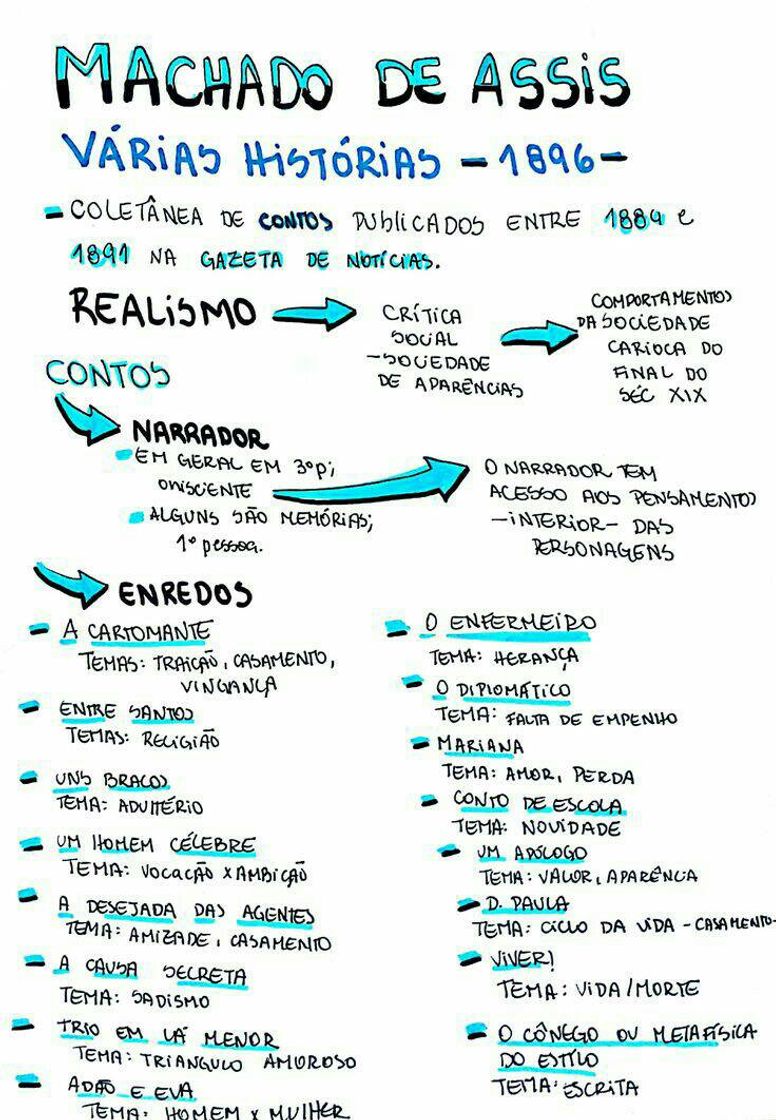 MACHADO DE ASSIS
VÁRIAS HISTÓRIAS - 1896 -
- COLETÂNEA DE CONTOS PUBLICADOS ENTRE 1884 e
1891 NA GAZETA DE NOTÍCIAS.
REALISMO
CRÍTICA
SOCIAL
- SOCIEDADE
DE APARÊNCIAS
COMPORTAMENTOS
DA SOCIEDADE
CARIOCA DO
FINAL DO
SÉC XIX
CONTOS
NARRADOR
- EM GERAL EM 3ºp;
ONISCIENTE
- ALGUNS SÃO MEMÓRIAS;
1º pessoa.
O NARRADOR TEM
ACESSO AOS PENSAMENTOS
- INTERIOR - DAS
PERSONAGENS
ENREDOS
- A CARTOMANTE
TEMAS: TRAIÇÃO, CASAMENTO,
VINGANÇA
- ENTRE SANTOS
TEMAS: RELIGIÃO
- UNS BRAÇOS
TEMA: ADULTÉRIO
- UM HOMEM CÉLEBRE
TEMA: VOCAÇÃO X AMBIÇÃO
- A DESEJADA DAS AGENTES
TEMA: AMIZADE, CASAMENTO
- A CAUSA SECRETA
TEMA: SADISMO
- TRIO EM LÁ MENOR
TEMA: TRIANGULO AMOROSO
- ADÃO E EVA
TEMA: HOMEM X MULHER
- O ENFERMEIRO
TEMA: HERANÇA
- O DIPLOMÁTICO
TEMA: FALTA DE EMPENHO
- MARIANA
TEMA: AMOR, PERDA
- CONTO DE ESCOLA
TEMA: NOVIDADE
- UM APÓLOGO
TEMA: VALOR, APARÊNCIA
- D. PAULA
TEMA: CICLO DA VIDA - CASAMENTO -
- VIVER!
TEMA: VIDA/MORTE
- O CÔNEGO OU METAFÍSICA
DO ESTILO
TEMA: ESCRITA